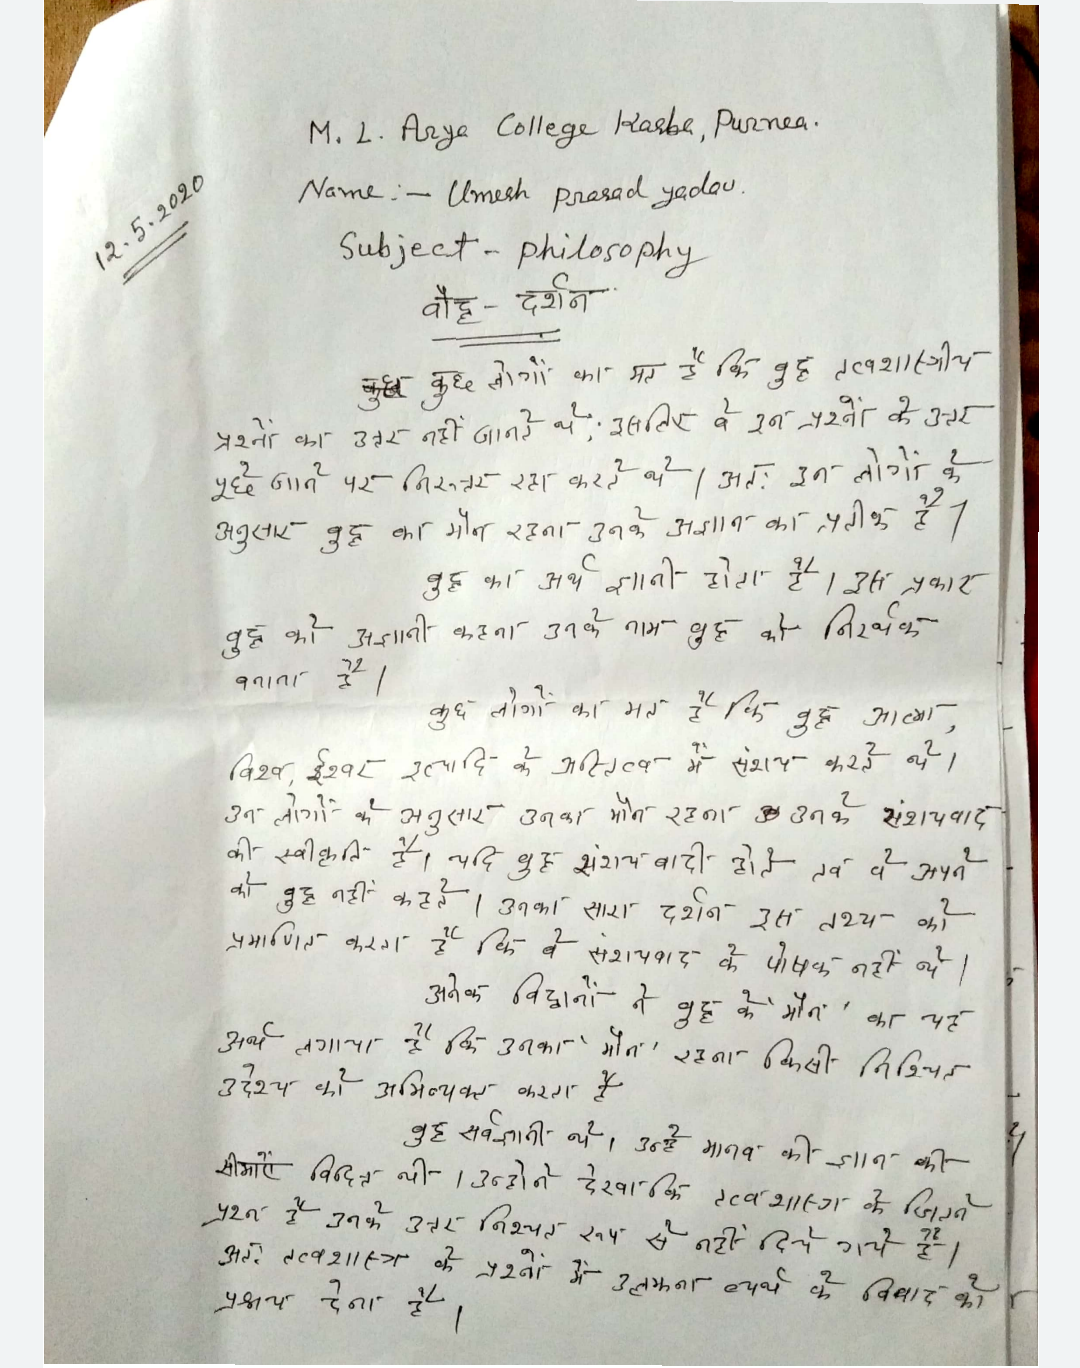 M. L. Arya College Kasba, Purnea.
Name :- Umesh prasad yadav.
12.5.2020
Subject - philosophy
बौद्ध - दर्शन
कुछ लोगों का मत है कि बुद्ध तत्वशास्त्रीय
प्रश्नों का उत्तर नहीं जानते थे; इसलिए वे इन प्रश्नों के उत्तर
पूछे जाने पर निरुत्तर रहा करते थे। अतः इन लोगों के
अनुसार बुद्ध का मौन रहना उनके अज्ञान का प्रतीक है।
बुद्ध का अर्थ ज्ञानी होता है। इस प्रकार
बुद्ध को अज्ञानी कहना उनके नाम बुद्ध को निरर्थक
बनाना है।
कुछ लोगों का मत है कि बुद्ध आत्मा,
विश्व, ईश्वर इत्यादि के अस्तित्व में संशय करते थे।
उन लोगों के अनुसार उनका मौन रहना उनके संशयवाद
की स्वीकृति है। यदि बुद्ध संशयवादी होते तब वे अपने
को बुद्ध नहीं कहते। उनका सारा दर्शन इस तथ्य को
प्रमाणित करता है कि वे संशयवाद के पोषक नहीं थे।
अनेक विद्वानों ने बुद्ध के 'मौन' का यह
अर्थ लगाया है कि उनका 'मौन' रहना किसी निश्चित
उद्देश्य को अभिव्यक्त करता है
बुद्ध सर्वज्ञानी थे। उन्हें मानव की ज्ञान की
सीमाएँ विदित थी। उन्होंने देखा कि तत्वशास्त्र के जितने
प्रश्न हैं उनके उत्तर निश्चत रूप से नहीं दिये गये हैं।
अतः तत्वशास्त्र के प्रश्नों में उलझना व्यर्थ के विवाद को
प्रश्रय देना है।